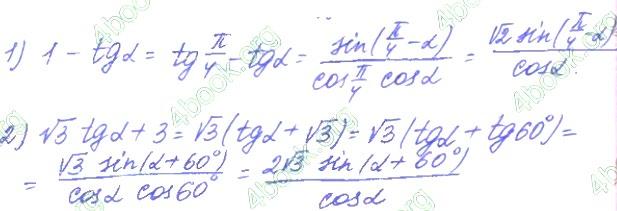 1) 1 - tgα = tg π/4 - tgα = sin(π/4 - α) / cos π/4 cosα = √2 sin(π/4 - α) / cosα.
2) √3 tgα + 3 = √3 (tgα + √3) = √3 (tgα + tg60°) =
= √3 sin(α + 60°) / cosα cos60° = 2√3 sin(α + 60°) / cosα
4book.org